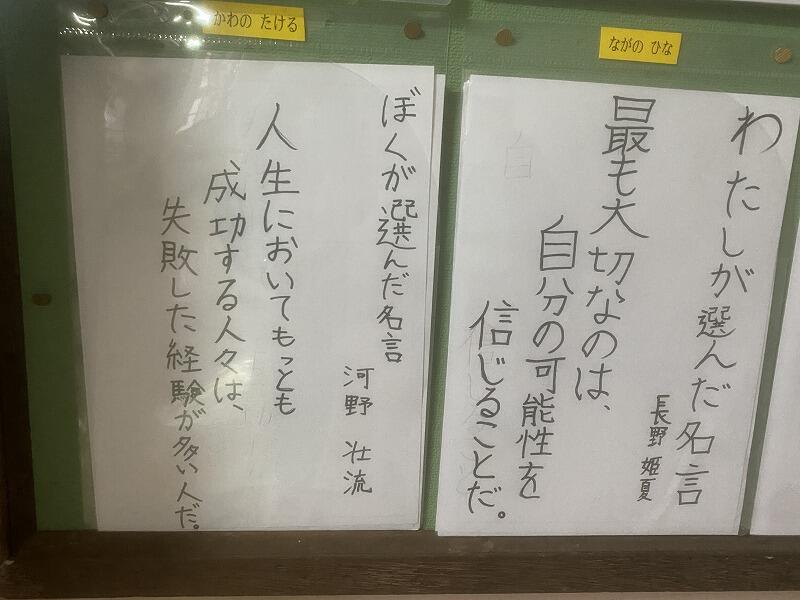 ながの ひな
わたしが選んだ名言
長野 姫夏
最も大切なのは、
自分の可能性を
信じることだ。
かわの たける
ぼくが選んだ名言
河野 壮流
人生においてもっとも
成功する人々は、
失敗した経験が多い人だ。